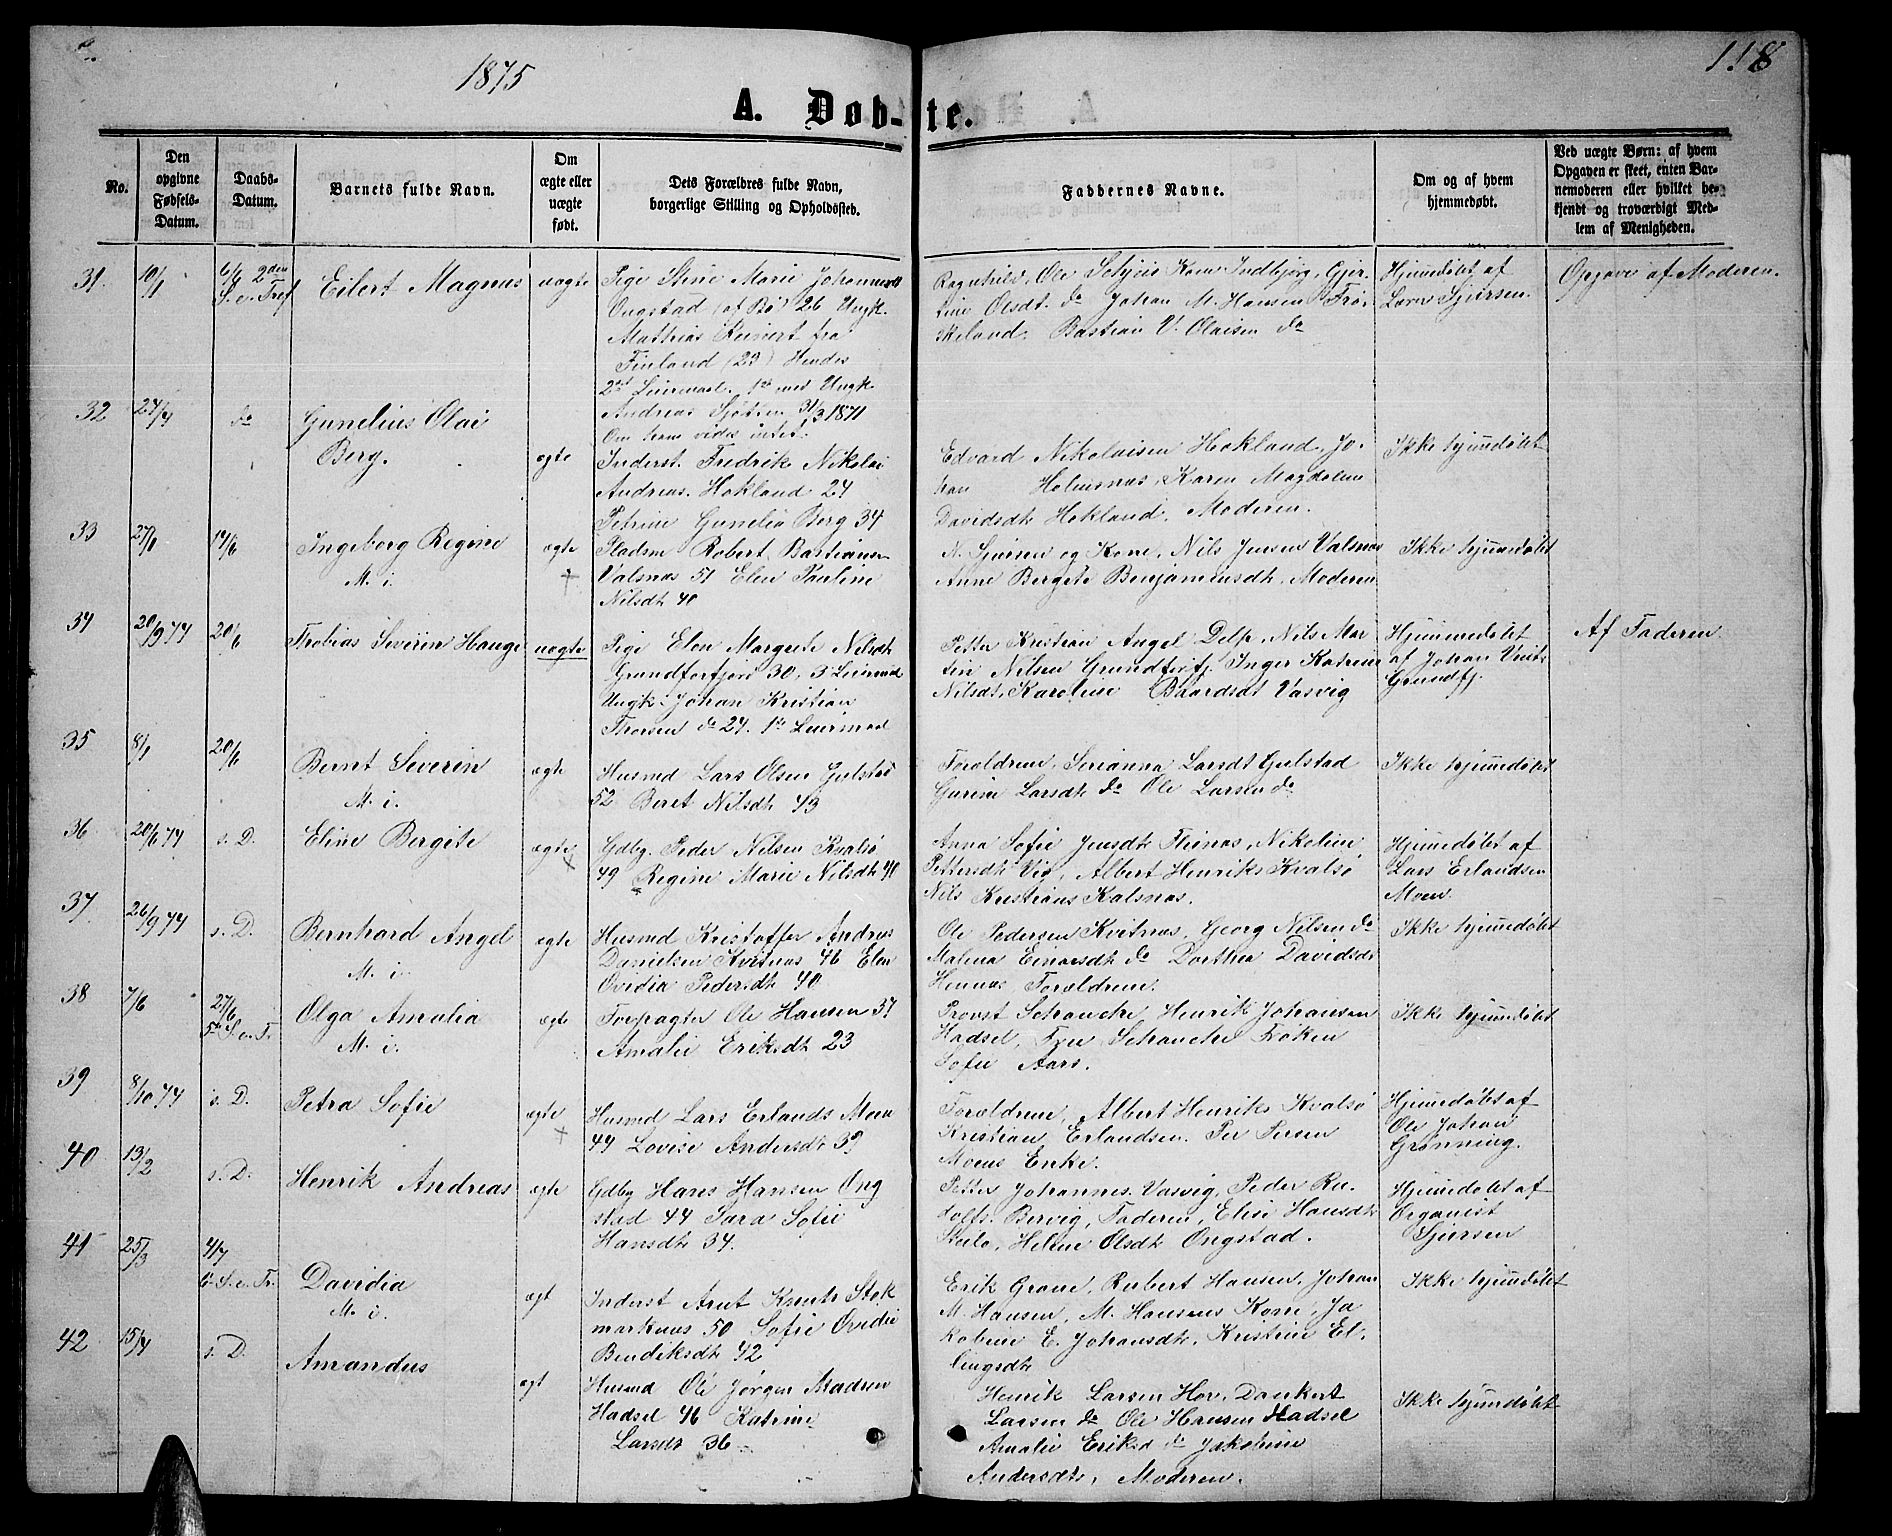 1875
118
A. Døb-te.
No.
Den opgivne Fødsels-Datum.
Daabs-Datum.
Barnets fulde Navn.
Om ægte eller uægte født.
Dets Forældres fulde Navn, borgerlige Stilling og Opholdssted.
Faddernes Navne.
Om og af hvem hjemmedøbt.
Ved uægte Børn: af hvem Opgaven er skeet, enten Barnemoderen eller hvilket bekjendt og troværdigt Medlem af Menigheden.
31
10/1
6/6 2den S. e. Tref
Eilert Magnus
uægte
Pige Stine Marie Johannesdt
Ongstad (af Bø) 26 Ungk.
Mathias fra
Finland (29) Hendes
2det Leiermaal, 1ste med Ungk
Andreas 31/3 1871
Om ham vides intet.
Ragnhild, Ole Kone Indbjørg, Gjer-
tine Olsdt. do Johan M. Hansen Frø-
skeland. Bastian V. Olaisen do
Hjemmedøbt af
Lærer Sjursen.
Opgave af Moderen.
32
24/4
do
Gunelius Olai
Berg.
ægte
Inderst. Fredrik Nikolai
Andreas. Hokland 24
Petrine Gunelia Berg 34
Edvard Nikolaisen Hokland, Jo-
han Holmsnæs, Karen Magdalena
Davidsdt Hokland. Moderen.
Ikke hjemmedøbt
33
27/1
14/6
Ingeborg Regine
M. i.
ægte
Pladsm Robert Bastiansen
Valsnæs 51 Elen Pauline
Nilsdt 40
N. Sjursen og Kone, Nils Jensen Valsnæs
Anne Bergete Benjaminsdt, Moderen
Ikke hjemmedøbt
34
20/9 74
20/6
Thobias Severin Hauge
uægte
Pige Elen Margrete Nilsdt
Grundforfjord 30, 3 Leiermaal
Ungk. Johan Kristian
Thorsen do 24. 1ste Leiermaal
Petter Kristian Angel Delp, Nils Mar
tin Nilsen Grundforfj. Inger Katrine
Nilsdt, Karoline Baardsdt Vasvig
Hjemmedøbt
af Johan
Grundfj.
Af Faderen.
35
8/1
20/6
Bernt Severin
M. i.
ægte
Husmd Lars Olsen Gulstad
52 Beret Nilsdt 43
Forældrene, Serianna Larsdt Gulstad
Gurine Larsdt do Ole Larsen do
Ikke hjemmedøbt
36
20/6 74
s. D.
Eline Bergite
ægte
Gdbg. Peder Nilsen Kvalsø
49 Regine Marie Nilsdt 40
Anna Sofie Jensdt Flesnæs, Nikoline
Pettersdt Vig, Albert Henriks Kvalsø
Nils Kristians Kalsnæs.
Hjemmedøbt af
Lars Erlandsen
Moen.
37
26/9 74
s. D.
Bernhard Angel
M. i.
ægte
Husmd Kristoffer Andreas
Danielsen Kvitnæs 46 Elen
Ovidia Pedersdt 40
Ole Pedersen Kvitnæs, Georg Nilsen do
Malena Einarsdt do Dorthea Davidsdt
Hennæs, Forældrene.
Ikke hjemmedøbt
38
7/6
27/6
5te S. e. Tr.
Olga Amalia
M. i.
ægte
Forpagter Ole Hansen 37
Amalie Eriksdt 23
Provst Schanche, Henrik Johansen
Hadsel, Fru Schanche Frøken
Sofie Aars.
Ikke hjemmedøbt
39
8/10 74
s. D.
Petra Sofie
ægte
Husmd Lars Erlands Moen
44 Lovise Andersdt 39
Forældrene, Albert Henriks Kvalsø
Kristian Erlandsen. Per Persen
Moens Enke.
Hjemmedøbt af
Ole Johan
Grønning.
40
13/2
s. D.
Henrik Andreas
ægte
Gdbg Hans Hansen Ong
stad 44 Sara Sofie
Hansdt 34.
Petter Johannes. Vasvig, Peder Ru-
dolfs. Bervig, Faderen, Elise Hansdt
Helene Olsdt Ongstad.
Hjemmedøbt af
Organist
Sjursen
41
25/3
4/7
6 S. e. Tr.
Davidia
M. i.
ægt
Inderst Arnt Knuts Stok
marknæs 50 Sofie Ovidie
Bendiksdt 42
Erik Grane, Robert Hansen, Johan
M. Hansen, M. Hansens Kone, Ja
kobine E. Johansdt, Kristine El-
lingsdt
Ikke hjemmedøbt
42
15/4
s. D.
Amandus
ægt
Husmd Ole Jørgen Madsen
Hadsel 46 Katrine
Larsdt 36
Henrik Larsen Hov, Dankert
Larsen do Ole Hansen Hadsel
Amalie Eriksd do Jakobine
Andersdt, Moderen.
Ikke hjemmedøbt